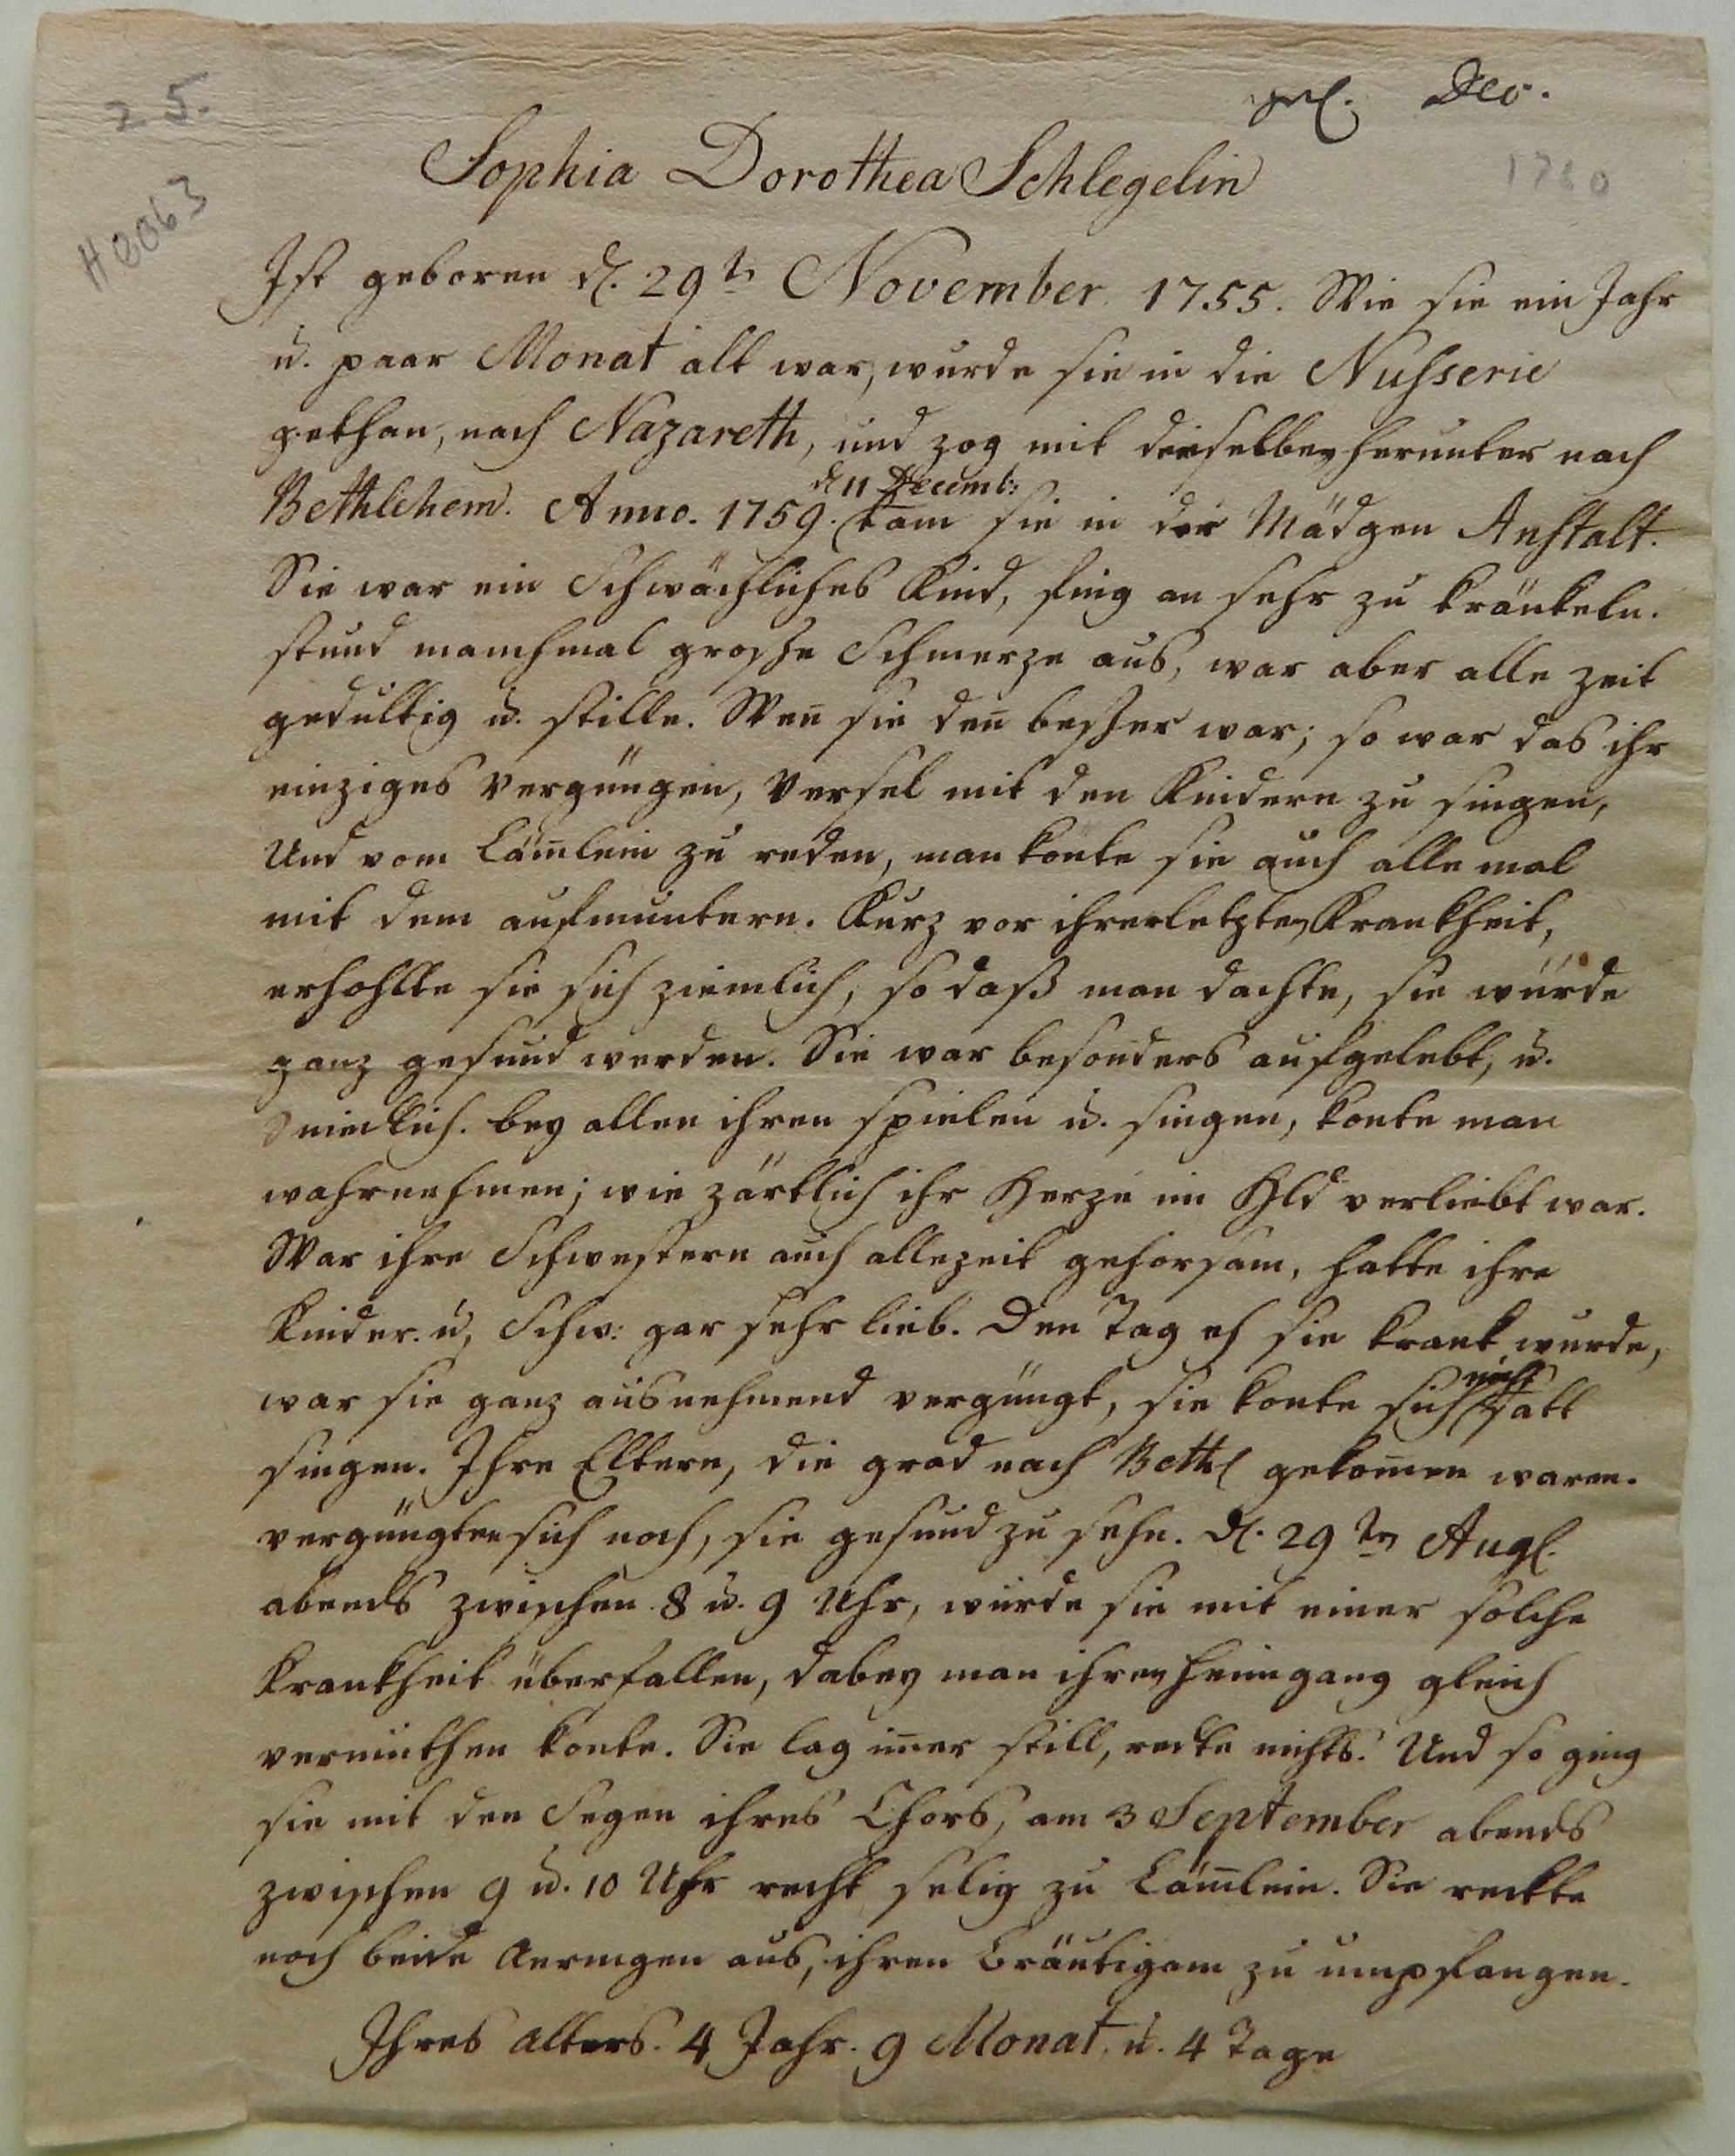 25.
H0063
Dec.
1760
Sophia Dorothea Schlegelin
Ist geboren d. 29t November 1755. Wie sie ein Jahr
u. paar Monat alt war, wurde sie in die Nußserie
gethan, nach Nazareth, und zog mit dieselben herunter nach
d 11 Decemb:
Bethlehem. Anno. 1759. kam sie in die Mädgen Anstalt.
Sie war ein Schwächliches Kind, fing an sehr zu kränkeln.
stund manchmal große Schmerze aus, war aber alle zeit
gedultig u. stille. Wen̅ sie den̅ beßer war; so war das ihr
einziges vergüngen, Versel mit den Kindern zu singen,
Und vom Läm̅lein zu reden, man konte sie auch alle mal
mit dem aufmuntern. Kurz vor ihrer letzten Krankheit,
erhohlte sie sich ziemlich, so daß man dachte, sie würde
ganz gesund werden. Sie war besonders aufgelebt, u.
niedlich. bey allen ihren spielen u. singen, konte man
wahrnehmen; wie zärtlich ihr Herze im Hld verliebt war.
War ihre Schwestern auch allezeit gehorsam, hatte ihre
Kinder. u, Schw: gar sehr lieb. Den Tag eh sie krank wurde,
nicht
war sie ganz ausnehmend vergüngt, sie konte sich satt
singen. Ihre Eltern, die grad nach Bethl gekom̅en waren.
vergüngten sich noch, sie gesund zu sehn. d. 29tn Augl.
abends zwischen 8 u. 9 Uhr, wurde sie mit einer solche
Krankheit überfallen, dabey man ihren heimgang gleich
vermuthen konte. Sie lag im̅er still, redte nichts. Und so ging
sie mit den Segen ihres Chors, am 3 September abends
zwischen 9 u. 10 Uhr recht selig zu Läm̅lein. Sie reckte
noch beide Aermgen aus, ihren Bräutigam zu umpfangen.
Ihres alters. 4 Jahr. 9 Monat, u. 4 Tage